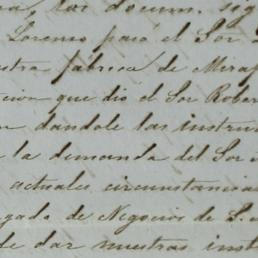 los docum. sig
Lorenzo para el Sor
stra fábrica de Miraf
cion que dió el Sor Rober
dandole las instru
la demanda del Sor
actuales circunstancias
gado de Negocios de S.
de dar nuestras inst